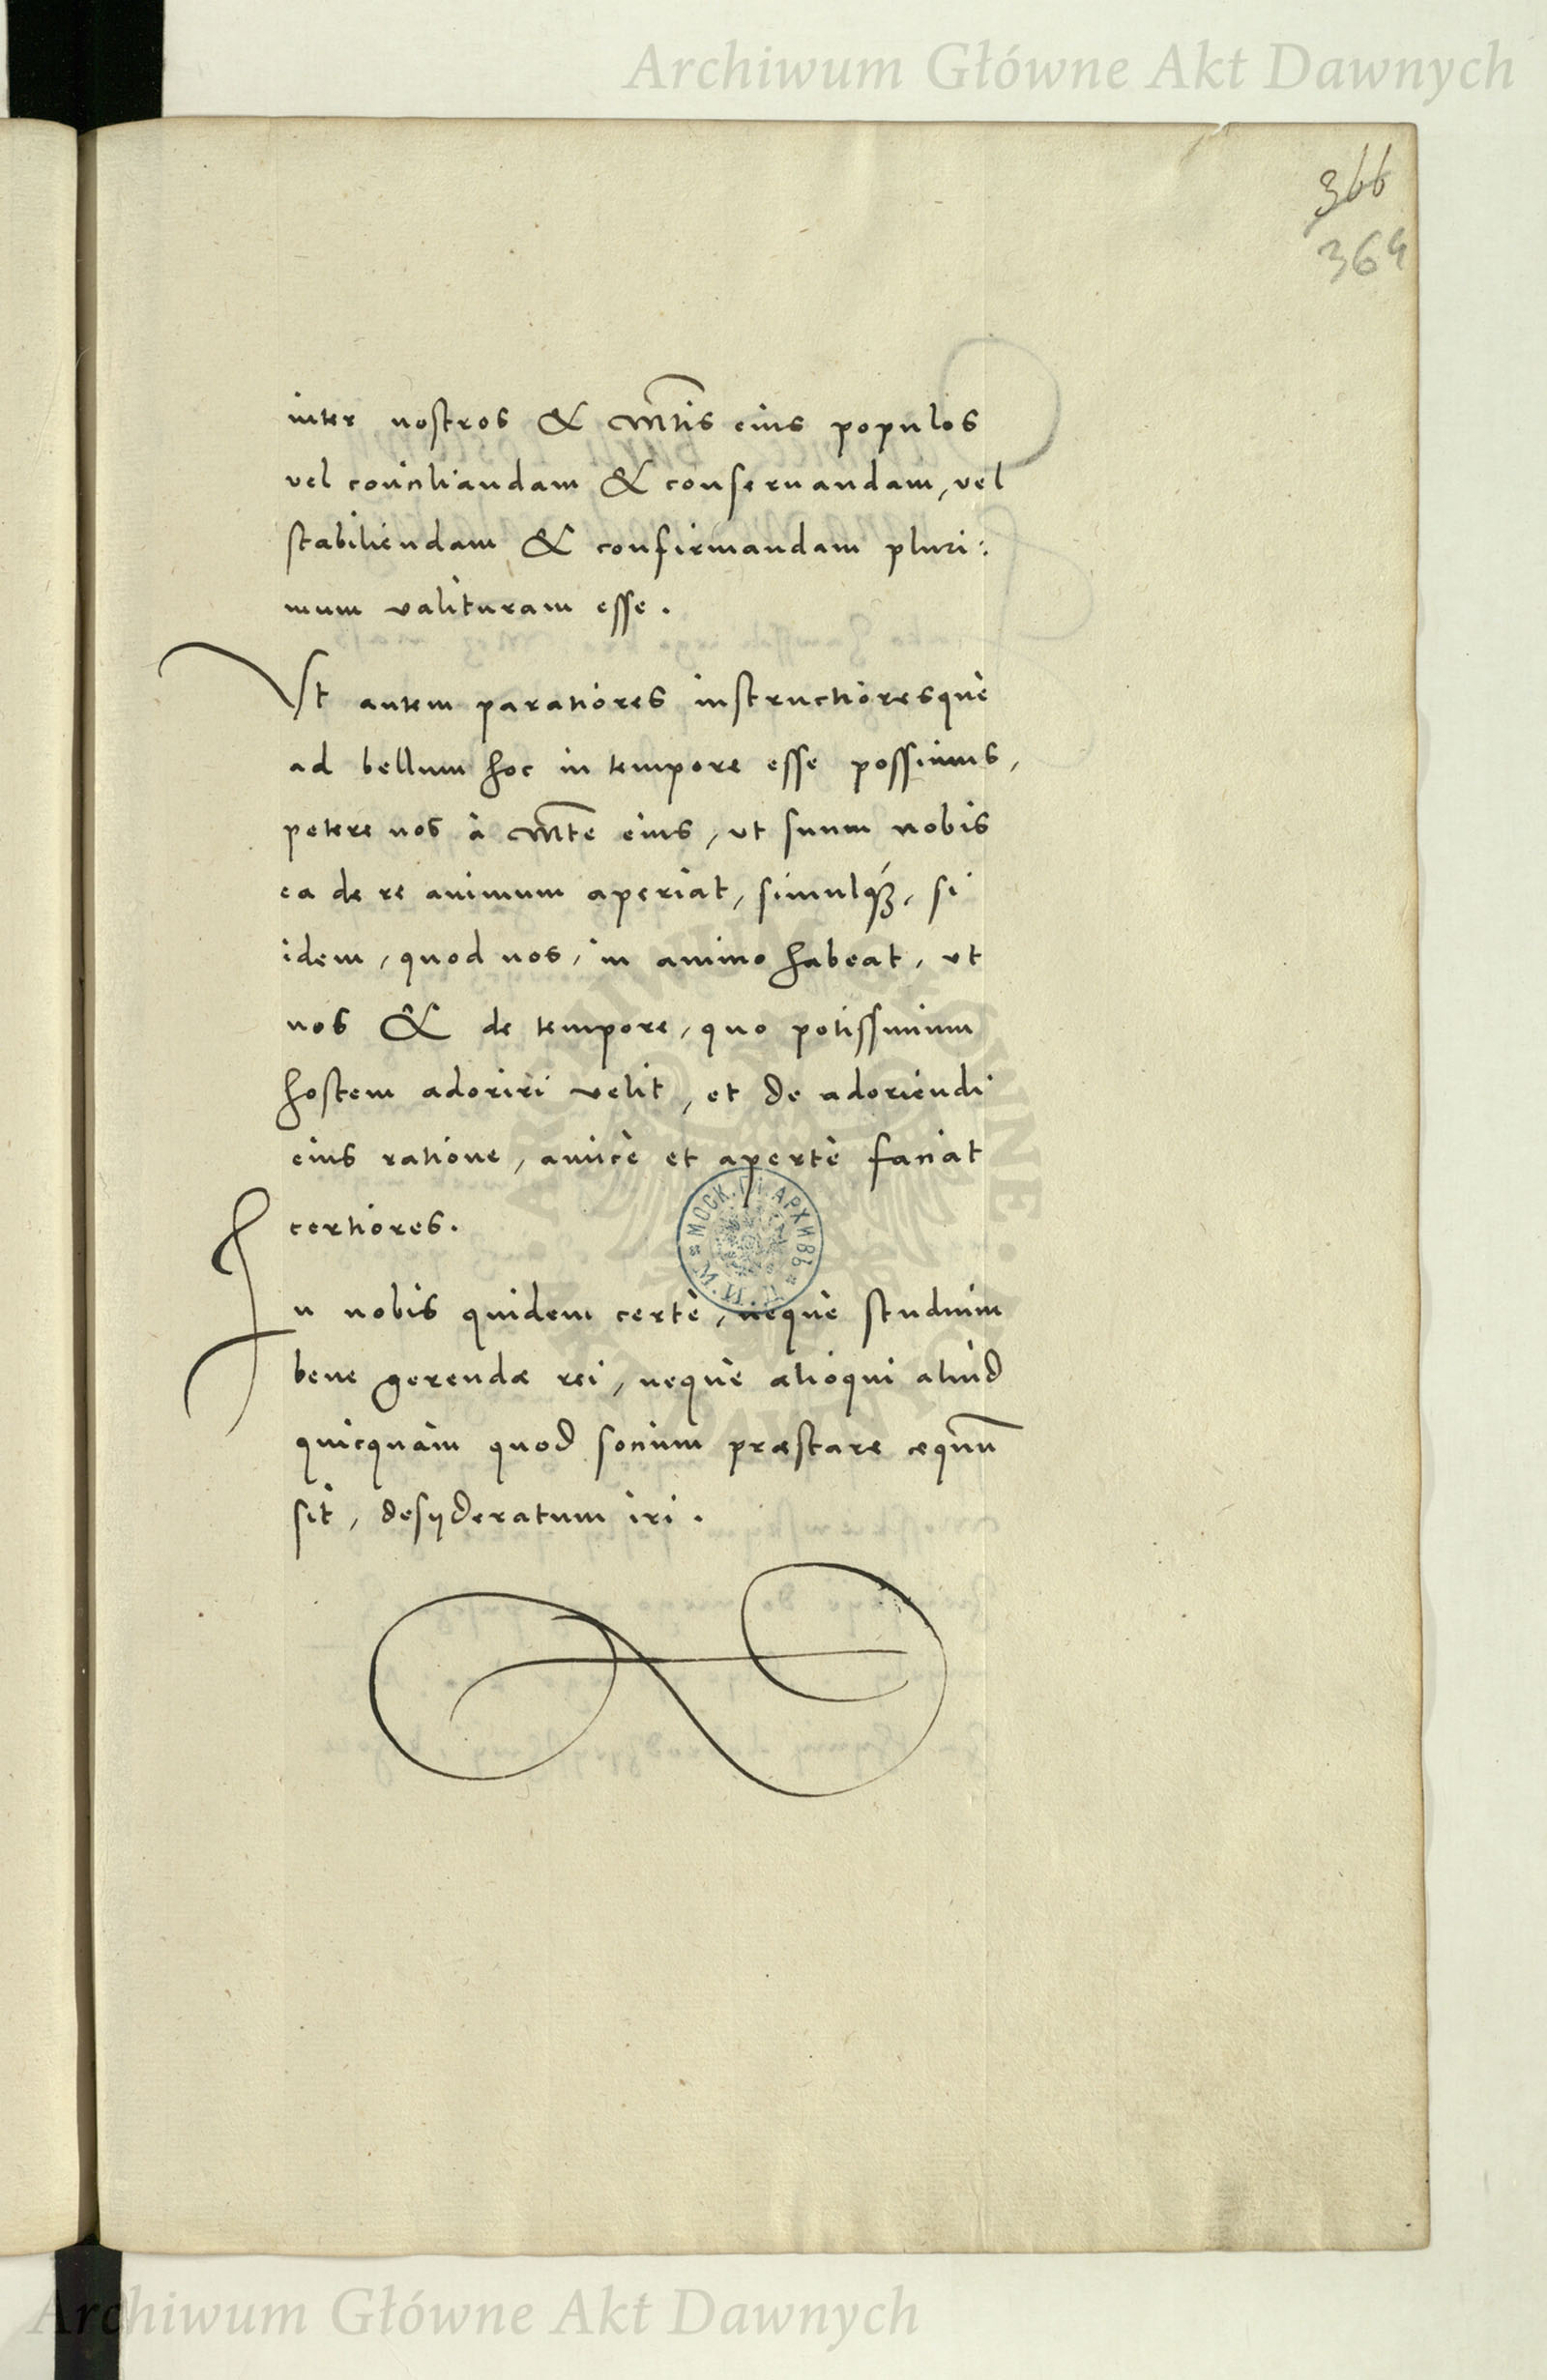 Archiwum Główne Akt Dawnych
366
364
inter nostros & Mtis eius populos
vel conciliandam & conseruandam, vel
stabiliendam & confirmandam pluri:
mum valituram esse.
Vt autem paratiores instructioresque
ad bellum hoc in tempore esse possimus,
petere nos à Mte eius, vt suum nobis
ea de re animum aperiat, simulq3, si
idem, quod nos, in animo habeat, vt
nos & de tempore, quo potissimum
hostem adoriri velit, et de adoriendi
eius ratione, amicè et apertè faciat
certiores.
In nobis quidem certè, neque studium
bene gerendæ rei, neque alioqui aliud
quicquam quod socium præstare æquum
sit, desyderatum iri.
Archiwum Główne Akt Dawnych